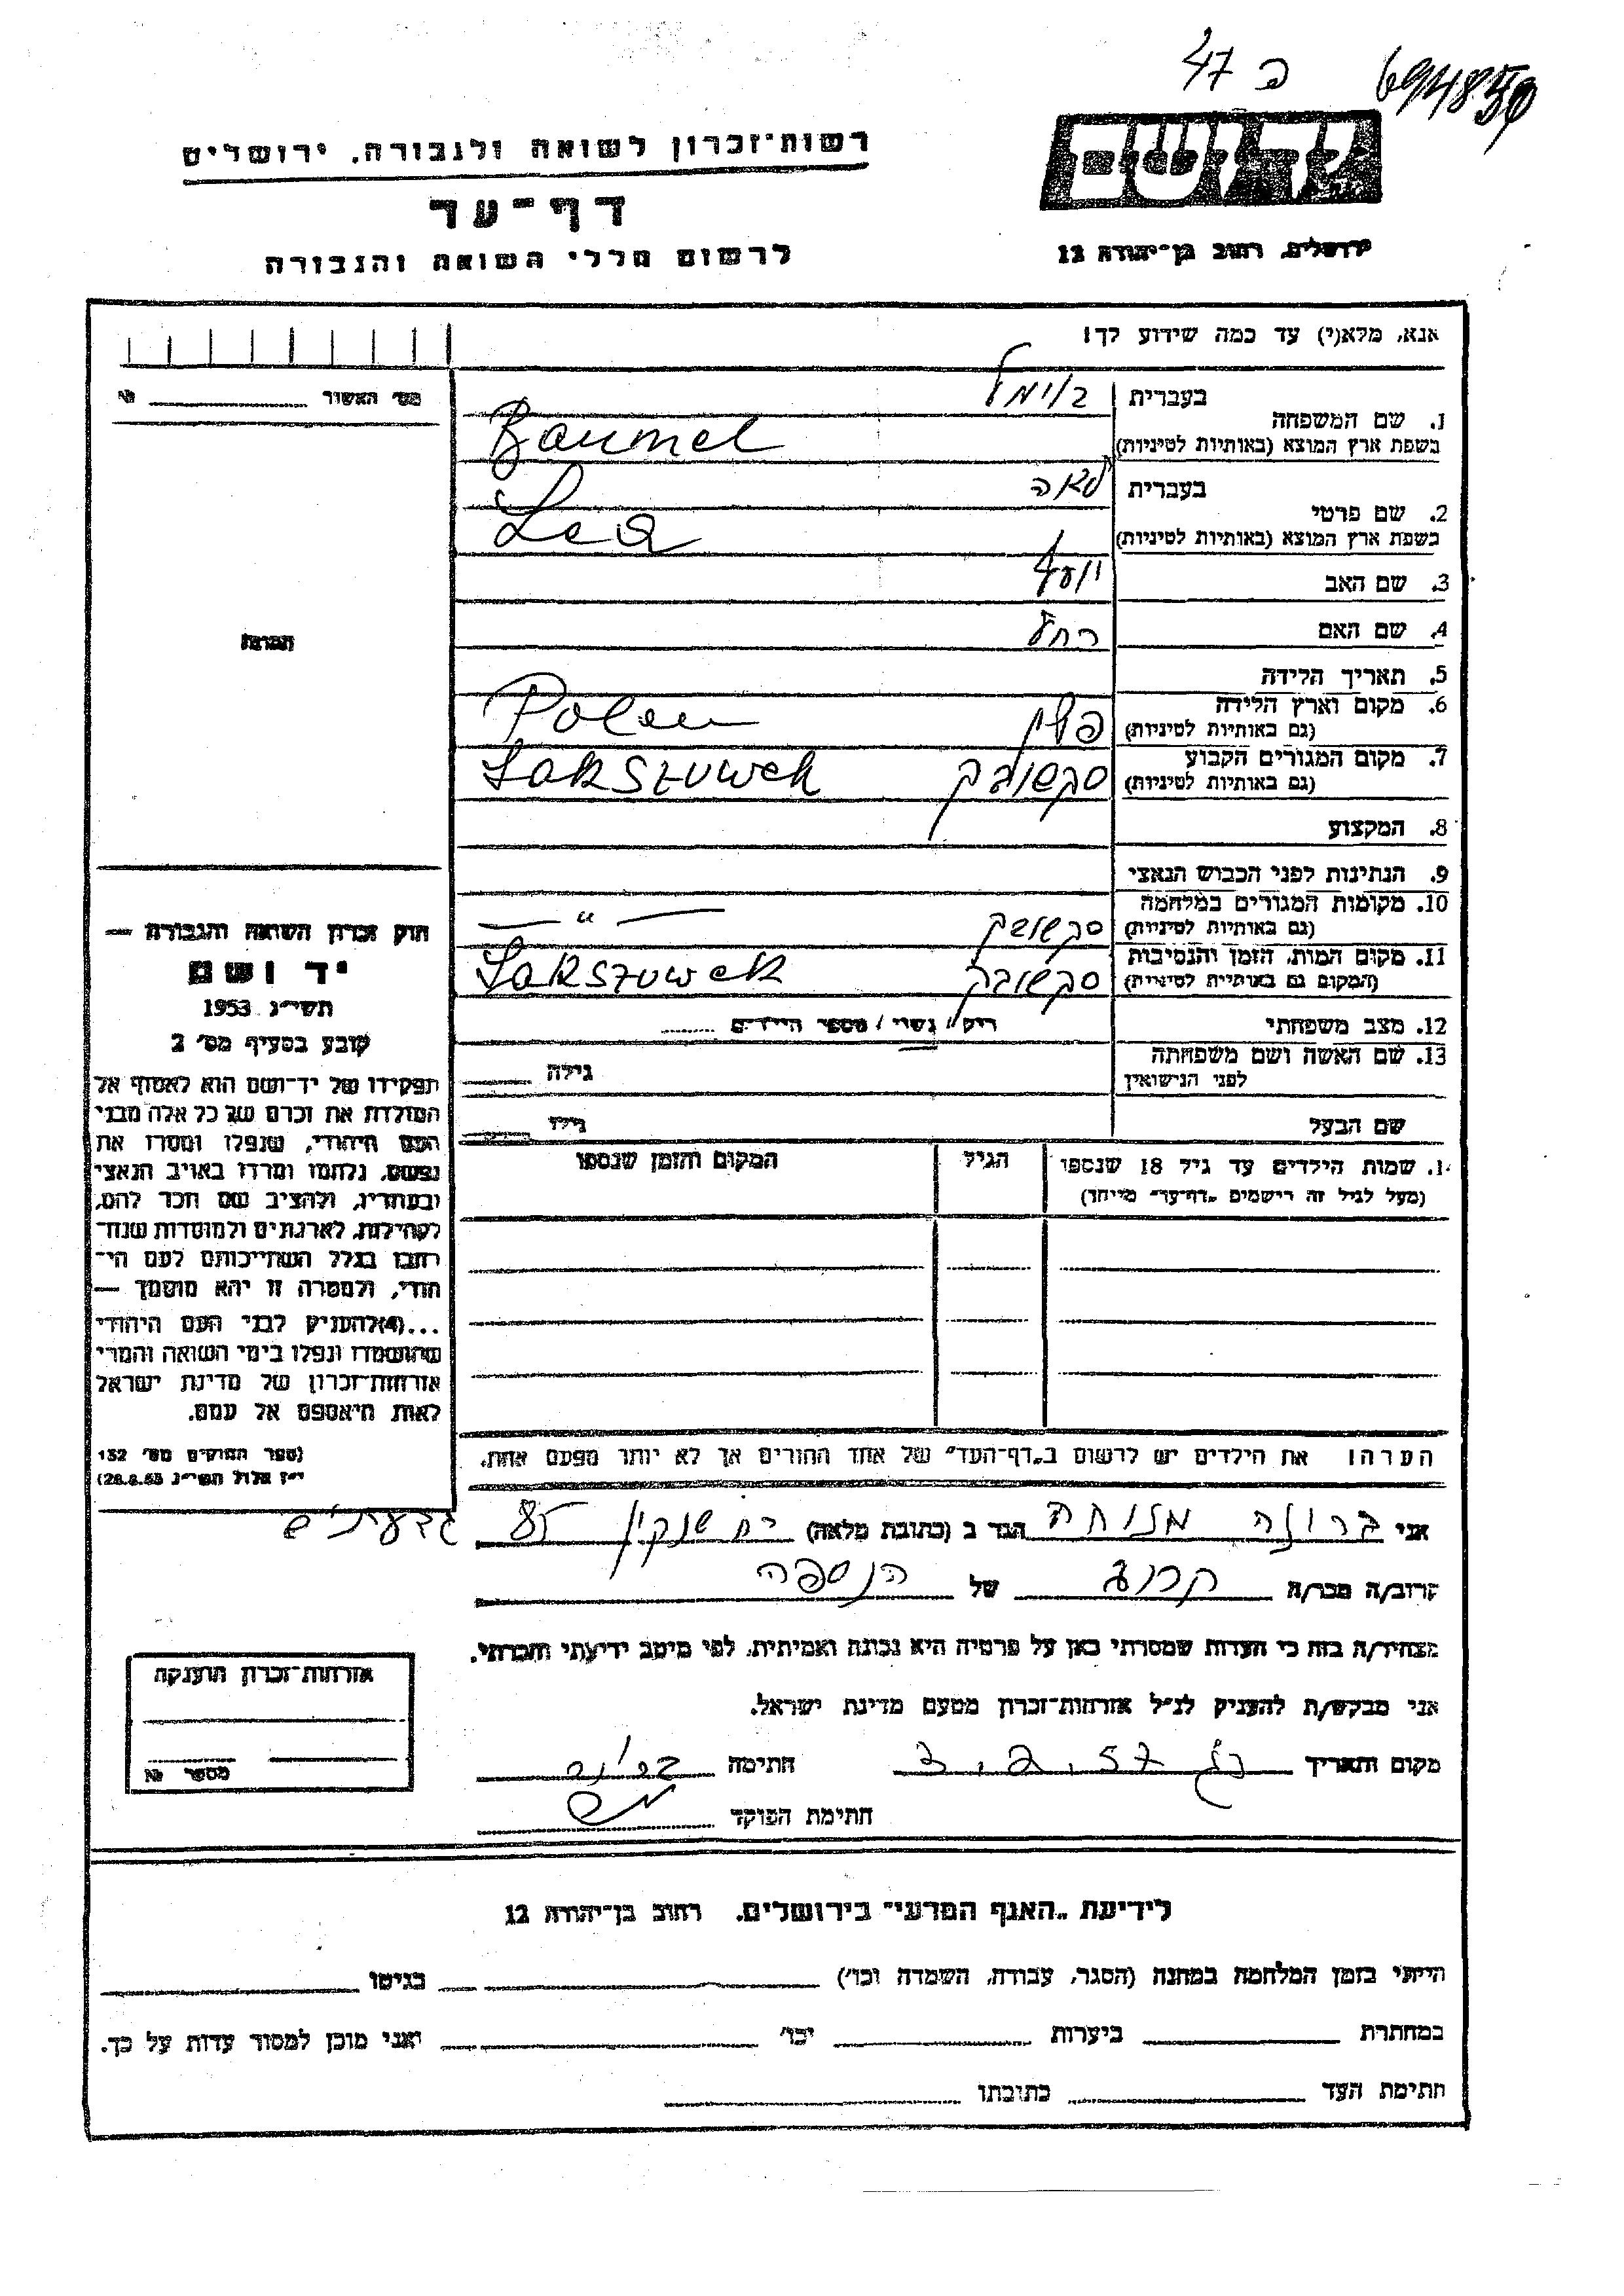 47 פ
רשות־זכרון לשואה ולגבורה, ירושלים
דף־עד
לרשום חללי השואה והגבורה
ירושלים, רחוב בן־יהודה 12
אנא, מלא(י) עד כמה שידוע לך!
מס׳ האשור №
1. שם המשפחה בעברית בוימל
בשפת ארץ המוצא (באותיות לטיניות) Baumel
2. שם פרטי בעברית לאה
בשפת ארץ המוצא (באותיות לטיניות) Lea
3. שם האב
4. שם האם רחל
5. תאריך הלידה
6. מקום וארץ הלידה פולין Polen
(גם באותיות לטיניות)
7. מקום המגורים הקבוע סקשובק Sakszuwek
(גם באותיות לטיניות)
8. המקצוע
9. הנתינות לפני הכבוש הנאצי
10. מקומות המגורים במלחמה סקשובק — " —
(גם באותיות לטיניות)
11. מקום המות, הזמן והנסיבות סקשובק Sakszuwek
(המקום גם באותיות לטיניות)
12. מצב משפחתי רוק/ נשוי/ מספר הילדים
13. שם האשה ושם משפחתה
לפני הנישואין גילה
שם הבעל גילו
14. שמות הילדים עד גיל 18 שנספו הגיל המקום והזמן שנספו
(מעל לגיל זה רישמים "דף־עד" מייחד)
הערה: את הילדים יש לרשום ב"דף־העד" של אחד ההורים אך לא יותר מפעם אחת.
חוק זכרון השואה והגבורה —
יד ושם
תשי״ג 1953
קובע בסעיף מס׳ 2
תפקידו של יד־ושם הוא לאסוף אל
המולדת את זכרם של כל אלה מבני
העם היהודי, שנפלו ומסרו את
נפשם, נלחמו ומרדו באויב הנאצי
ובעוזריו, ולהציב שם וזכר להם,
לקהילות, לארגונים ולמוסדות שנח־
רבו בגלל השתייכותם לעם הי־
הודי, ולמטרה זו יהא מוסמך —
...(4)להעניק לבני העם היהודי
שהושמדו ונפלו בימי השואה והמרי
אזרחות־זכרון של מדינת ישראל
לאות היאספם אל עמם.
(ספר החוקים מס׳ 132
י״ז אלול תשי״ג 28.8.53)
אני ברונה מנוחה הגר ב (כתובת מלאה) רח שנקין 85 גבעתיים
קרוב/ה מכר/ה קרוב של הנספה
מצהיר/ה בזה כי העדות שמסרתי כאן על פרטיה היא נכונה ואמיתית, לפי מיטב ידיעתי והכרתי.
אני מבקש/ת להעניק לנ״ל אזרחות־זכרון מטעם מדינת ישראל.
מקום ותאריך 3.2.57 חתימה
חתימת הפוקד
אזרחות־זכרון הוענקה
מספר №
לידיעת "האגף המדעי" בירושלים, רחוב בן־יהודה 12
הייתי בזמן המלחמה במחנה (הסגר, עבודה, השמדה וכו׳) בגיטו
במחתרת ביערות וכו׳ ואני מוכן למסור עדות על כך.
חתימת העד כתובתו